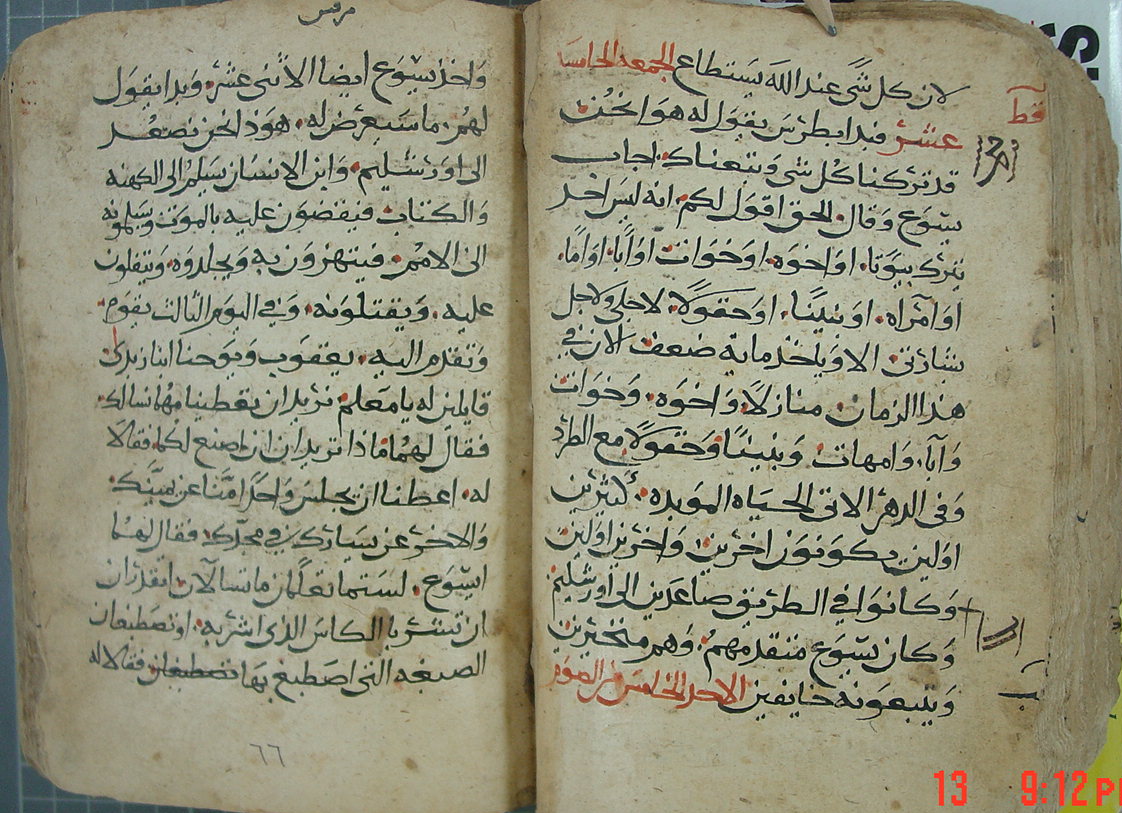 لان كل شى عند الله يستطاع الجمعه الخامسه
عشر فبدا بطرس يقول له هوذا نحن
قد تركنا كل شى وتبعناك. اجاب
يسوع وقال الحق اقول لكم. انه ليس احد
يترك بيوتا. او اخوه. او خوات او ابا. او اما.
او امراه. او بنينا. او حقولا. لاجلى ولاجل
بشارتى. الا وياخذ مايه ضعف الان فى
هذا الزمان. منازلا. واخوه. وخوات
وابا. وامهات وبنينا. وحقولا مع الطرد
وفى الدهر الاتى الحياه الموبده. كثيرين
اولين يكونون اخرين. واخرين اولين
وكانوا فى الطريق صاعدين الى اورشليم.
وكان يسوع متقدمهم. وهم متحيرين
ويتبعونه خايفين الاحد الخامس من الصوم
قط
مرقس
واخذ يسوع ايضا الاثنى عشر. وبدا يقول
لهم. ما سيعرض له. هوذا نحن نصعد
الى اورشليم. وابن الانسان يسلم الى الكهنه
والكتاب فيقضون عليه بالموت ويسلمونه
الى الامم. فيتهزون به ويجلدوه. ويتفلون
عليه. ويقتلونه. وفى اليوم الثالث يقوم.
وتقدم اليه. يعقوب ويوحنا ابنا زبدى
قايلين له يا معلم. نريد ان تعطينا مهما نسالك
فقال لهما ماذا تريدان ان اصنع لكما. فقالا
له. اعطنا ان يجلس واحدا منا عن يمينك
والاخر عن يسارك فى مجدك. فقال لهما
ايسوع. لستما تعلمان ما تسالان اتقدران
ان تشربا الكاس الذى اشربه. او تصطبغان
الصبغه التى اصطبغ بها تصطبغان فقالا له
٦٦
13 9:12 PM